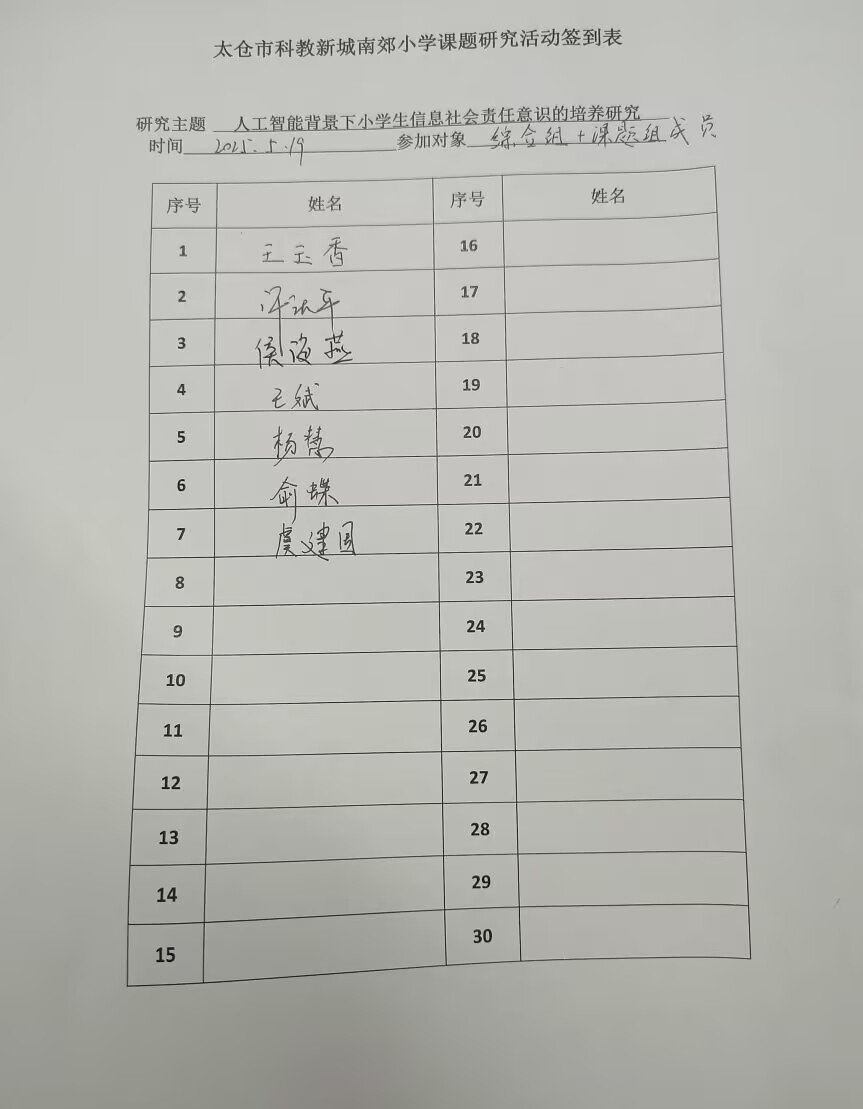 太仓市科教新城南郊小学课题研究活动签到表
研究主题 人工智能背景下小学生信息社会责任意识的培养研究
时间 2025.5.19 参加对象 综合组+课题组成员
序号 姓名 序号 姓名
1 王玉香 16
2 17
3 侯海燕 18
4 王斌 19
5 杨慧 20
6 俞蝶 21
7 虞建国 22
8 23
9 24
10 25
11 26
12 27
13 28
14 29
15 30